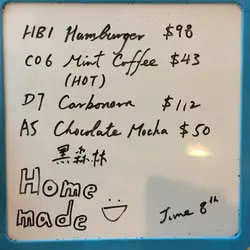 HB1 Hamburger $98
C06 Mint Coffee $43
(HOT)
D7 Carbonara $112
A5 Chocolate Mocha $50
黑森林
Home
made
June 8th